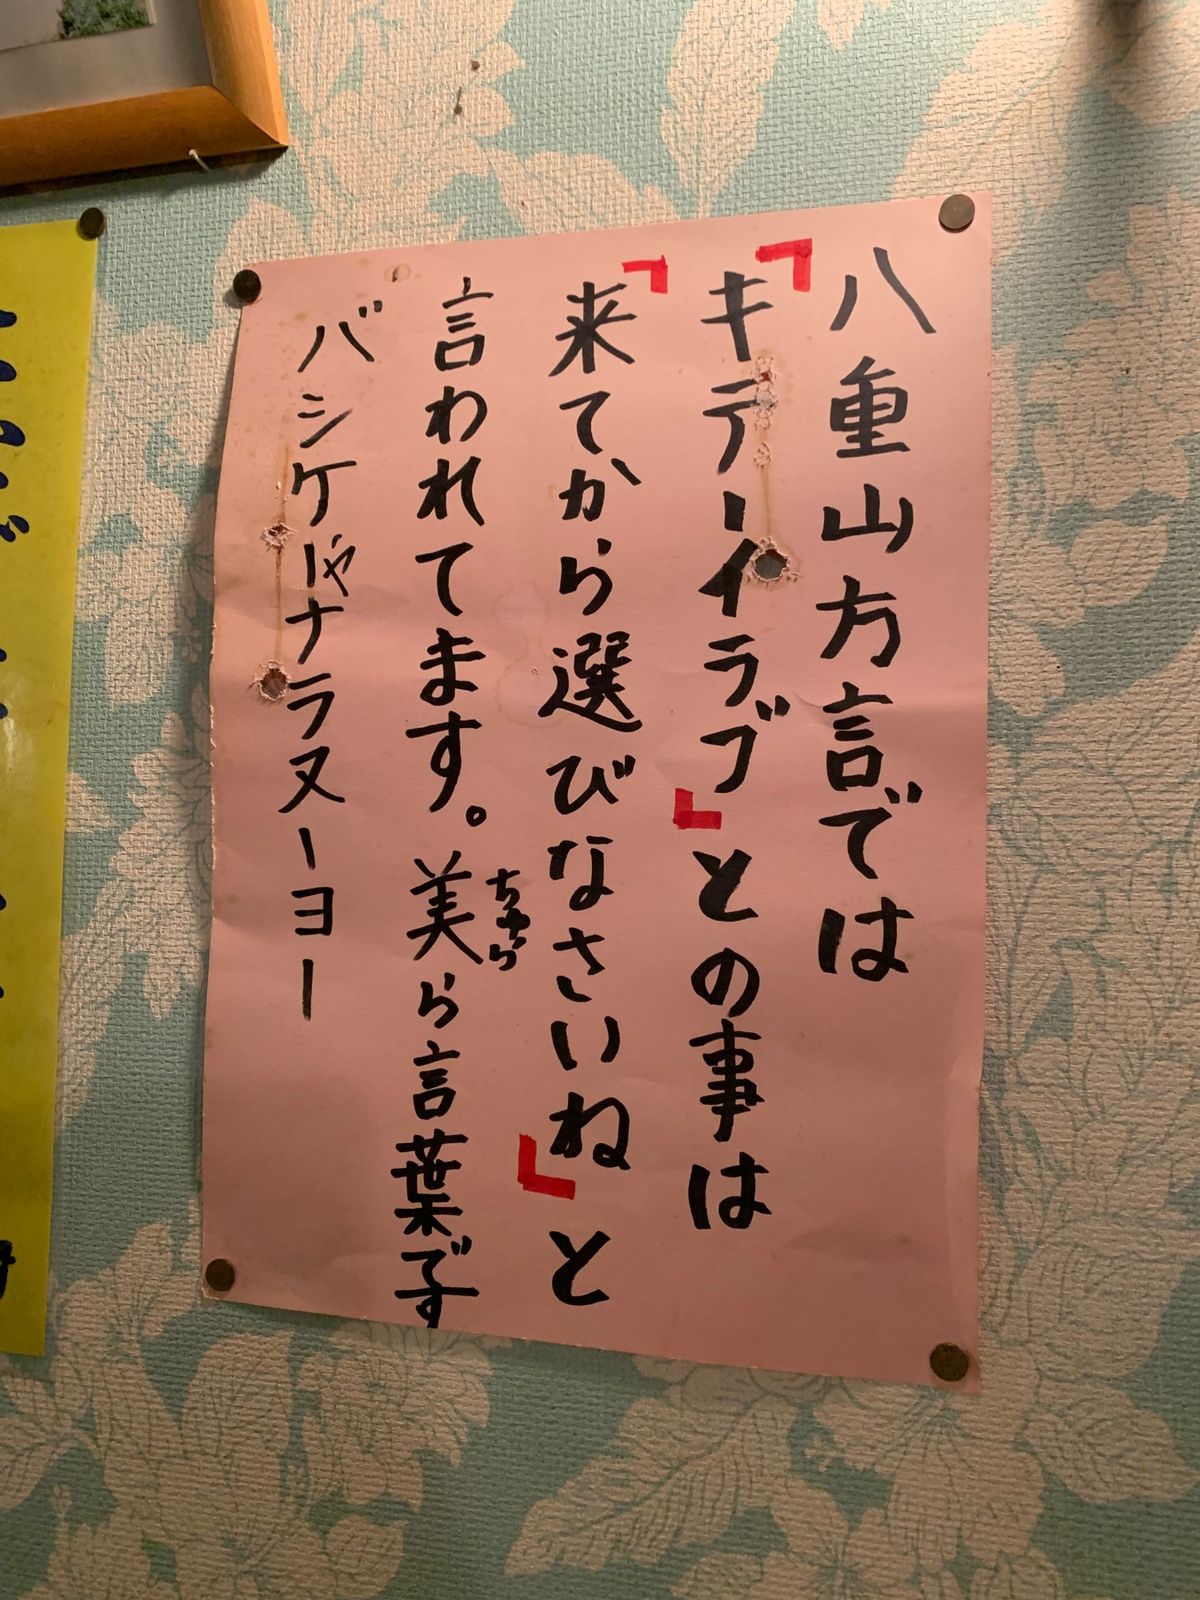 八重山方言では
「キテーイラブ」との事は
「来てから選びなさいね」と
言われてます。美ら言葉ですﾞ
ちゅら
バシケーャナラヌーヨー